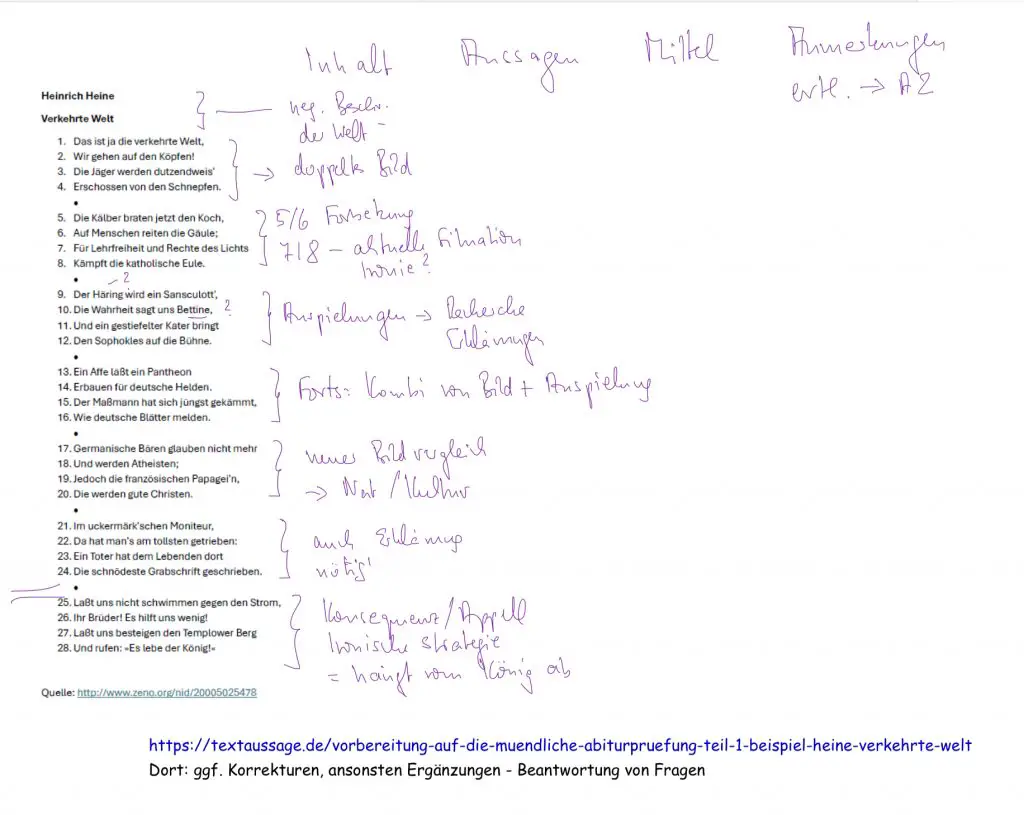 Inhalt Aussagen Mittel Anmerkungen
evtl. → A2
Heinrich Heine
Verkehrte Welt
neg. Beschr.
der Welt
1. Das ist ja die verkehrte Welt,
2. Wir gehen auf den Köpfen!
3. Die Jäger werden dutzendweis'
4. Erschossen von den Schnepfen.
→ doppeltes Bild
5. Die Kälber braten jetzt den Koch,
6. Auf Menschen reiten die Gäule;
7. Für Lehrfreiheit und Rechte des Lichts
8. Kämpft die katholische Eule.
5/6 Fortsetzung
7/8 – aktuelle Situation
Ironie?
9. Der Häring wird ein Sansculott',
10. Die Wahrheit sagt uns Bettine,
11. Und ein gestiefelter Kater bringt
12. Den Sophokles auf die Bühne.
?
?
Anspielungen → Recherche
Erklärungen
13. Ein Affe läßt ein Pantheon
14. Erbauen für deutsche Helden.
15. Der Maßmann hat sich jüngst gekämmt,
16. Wie deutsche Blätter melden.
Forts: Kombi von Bild + Anspielung
17. Germanische Bären glauben nicht mehr
18. Und werden Atheisten;
19. Jedoch die französischen Papagei'n,
20. Die werden gute Christen.
neuer Bildvergleich
→ Nat / Kultur
21. Im uckermärk'schen Moniteur,
22. Da hat man's am tollsten getrieben:
23. Ein Toter hat dem Lebenden dort
24. Die schnödeste Grabschrift geschrieben.
auch Erklärung
nötig!
25. Laßt uns nicht schwimmen gegen den Strom,
26. Ihr Brüder! Es hilft uns wenig!
27. Laßt uns besteigen den Templower Berg
28. Und rufen: »Es lebe der König!«
Konsequenz/Appell
Ironische Strategie
= hängt vom König ab
Quelle: http://www.zeno.org/nid/20005025478
https://textaussage.de/vorbereitung-auf-die-muendliche-abiturpruefung-teil-1-beispiel-heine-verkehrte-welt
Dort: ggf. Korrekturen, ansonsten Ergänzungen - Beantwortung von Fragen